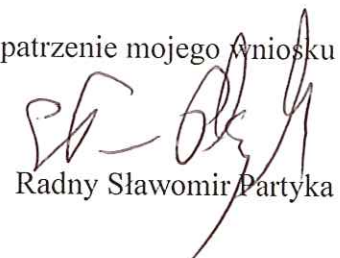 patrzenie mojego wniosku
Radny Sławomir Partyka